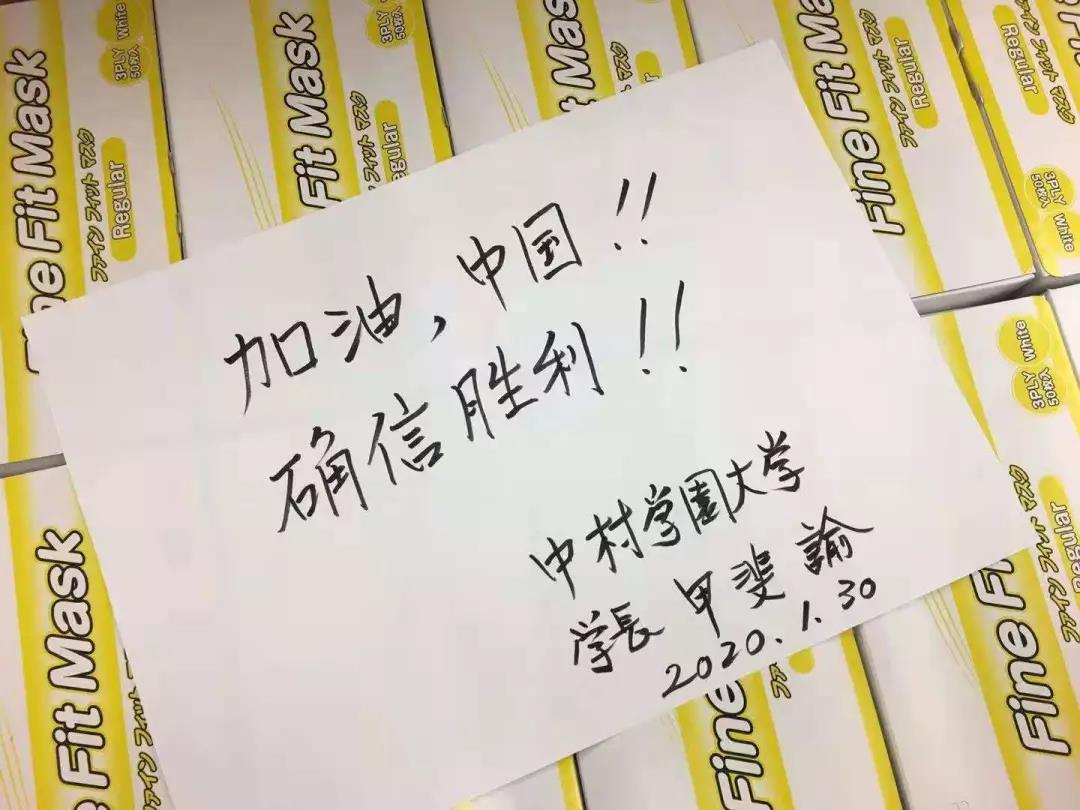 加油,中国!!
确信胜利!!
中村学園大学
学長 甲斐 諭
2020.1.30
Fine Fit Mask
ファイン フィット マスク
Regular
3PLY
50枚入
White
Fit Mask
Regular
3PLY
50枚入
Fine Fit Mask
ファイン フィット マスク
Regular
Regular
3PLY
50枚入
White
3PLY
50枚入
White
ファイン フィット マスク
Regular
Fine Fit Mask
ファイン フィット マスク
Fine Fit